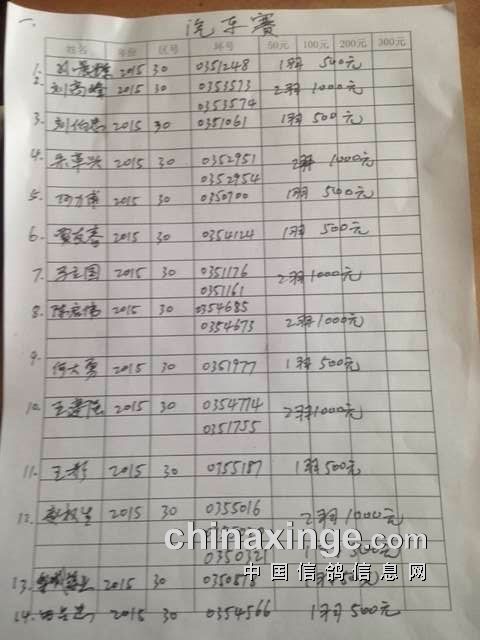 一.
汽车赛
姓名 年份 区号 环号 50元 100元 200元 300元
1. 2015 30 0351248 1羽 500元
2. 刘高峰 2015 30 0353573 2羽 1000元
0353574
3. 刘伯忠 2015 30 0351061 1羽 500元
4. 朱革兴 2015 30 0352951 2羽 1000元
0352954
5. 2015 30 0350700 1羽 500元
6. 贾友春 2015 30 0354124 1羽 500元
7. 2015 30 0351176 2羽 1000元
0351161
8. 陈宏伟 2015 30 0354685
0354673 2羽 1000元
9. 何大勇 2015 30 0351977 1羽 500元
10. 2015 30 0354774 2羽 1000元
0351755
11. 王彬 2015 30 0755187 1羽 500元
12. 赵权生 2015 30 0355016 2羽 1000元
chinaxinge.com
035032 500元
13. 2015 30
中国信鸽信息网
14. 2015 30 0354566 1羽 500元